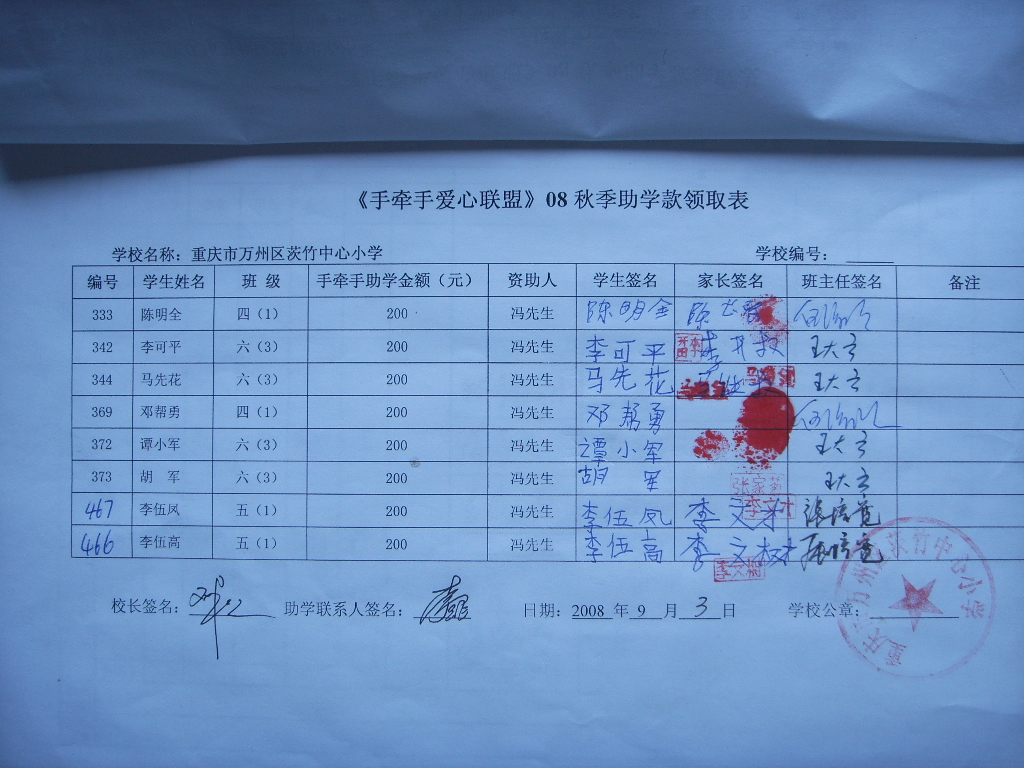 《手牵手爱心联盟》08 秋季助学款领取表
学校名称：重庆市万州区茨竹中心小学 学校编号：
编号 学生姓名 班 级 手牵手助学金额（元） 资助人 学生签名 家长签名 班主任签名 备注
333 陈明全 四（1） 200 冯先生 陈明全 陈
342 李可平 六（3） 200 冯先生 李可平 李 王大立
344 马先花 六（3） 200 冯先生 马先花 王大立
369 邓帮勇 四（1） 200 冯先生 邓帮勇
372 谭小军 六（3） 200 冯先生 谭小军 王大立
373 胡 军 六（3） 200 冯先生 胡 军 王大立
467 李伍凤 五（1） 200 冯先生 李伍凤 李文树 張培宽
466 李伍高 五（1） 200 冯先生 李伍高 李文树 張培宽
校长签名： 助学联系人签名： 日期：2008 年 9 月 3 日 学校公章：
重庆市万州区茨竹中心小学